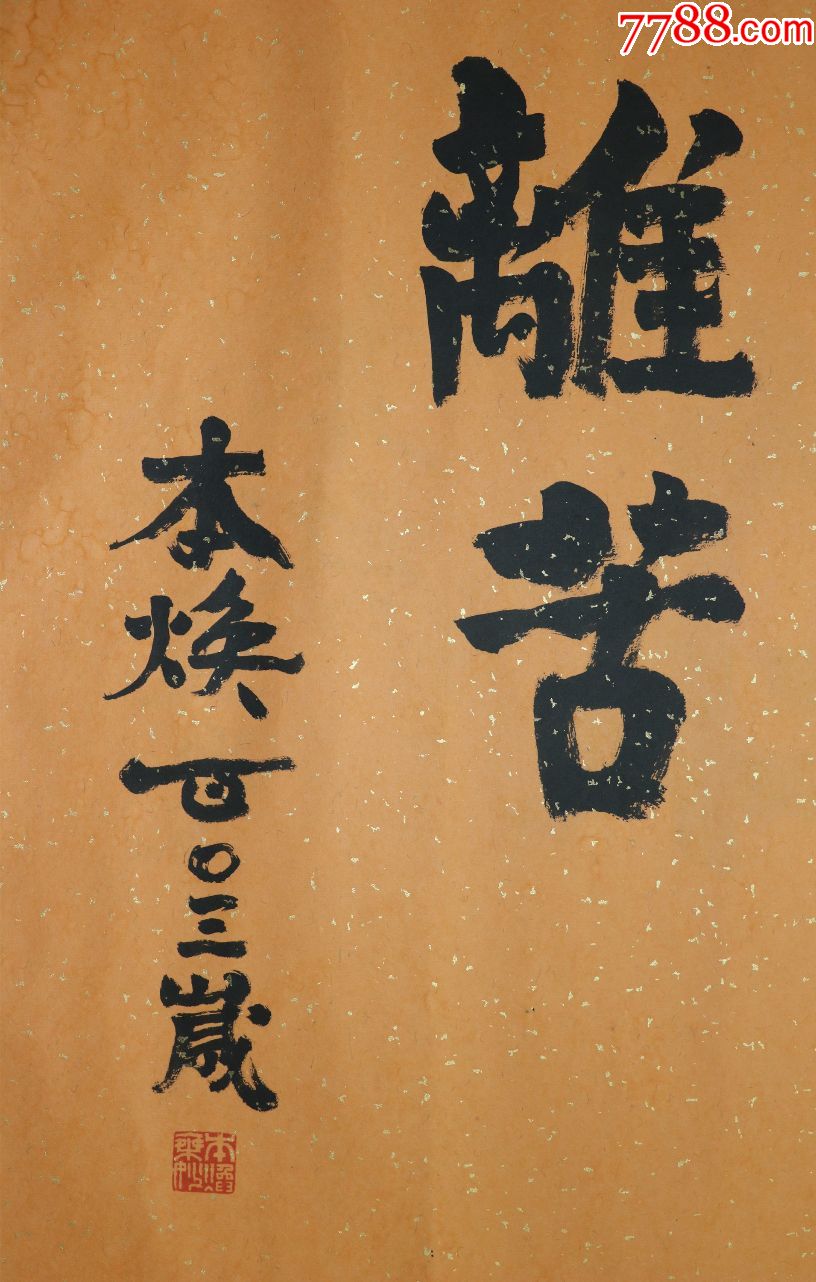 7788.com
離苦
本焕百〇三歲